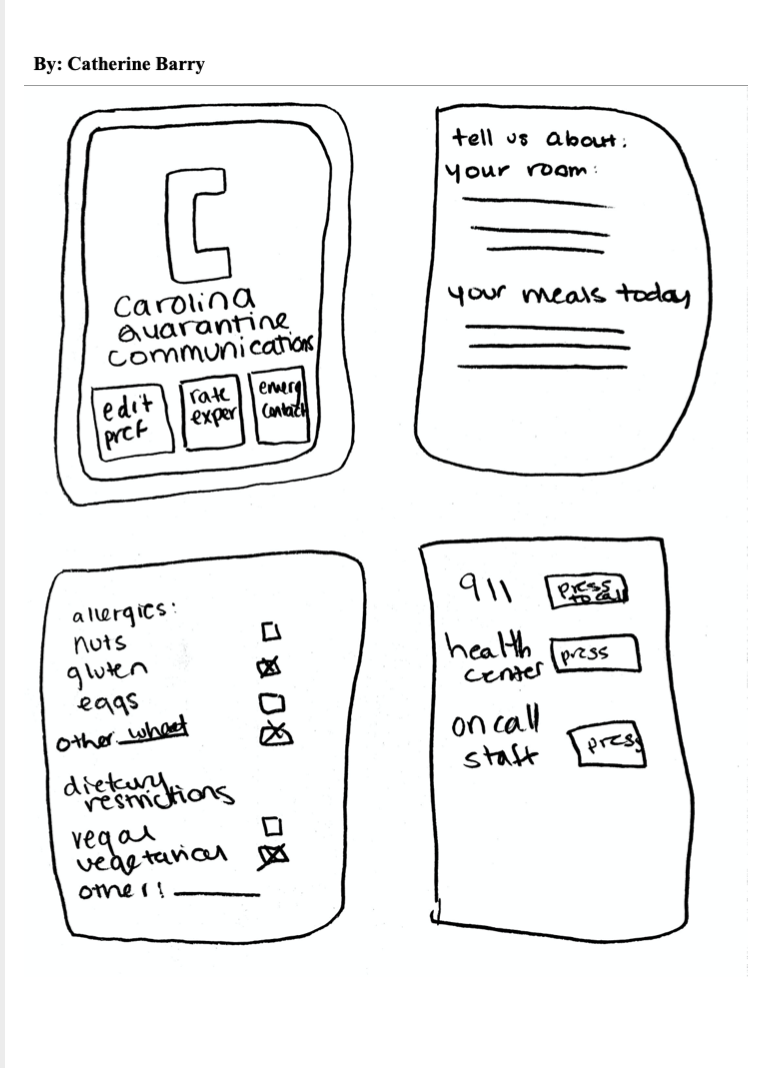 By: Catherine Barry
C
Carolina
Quarantine
Communications
edit
pref
rate
exper
emerg
contact
tell us about:
your room:
your meals today
allergies:
nuts
gluten
eggs
other wheat
dietary
restrictions
vegan
vegetarian
other:
911 press
to call
health
center press
on call
staff press